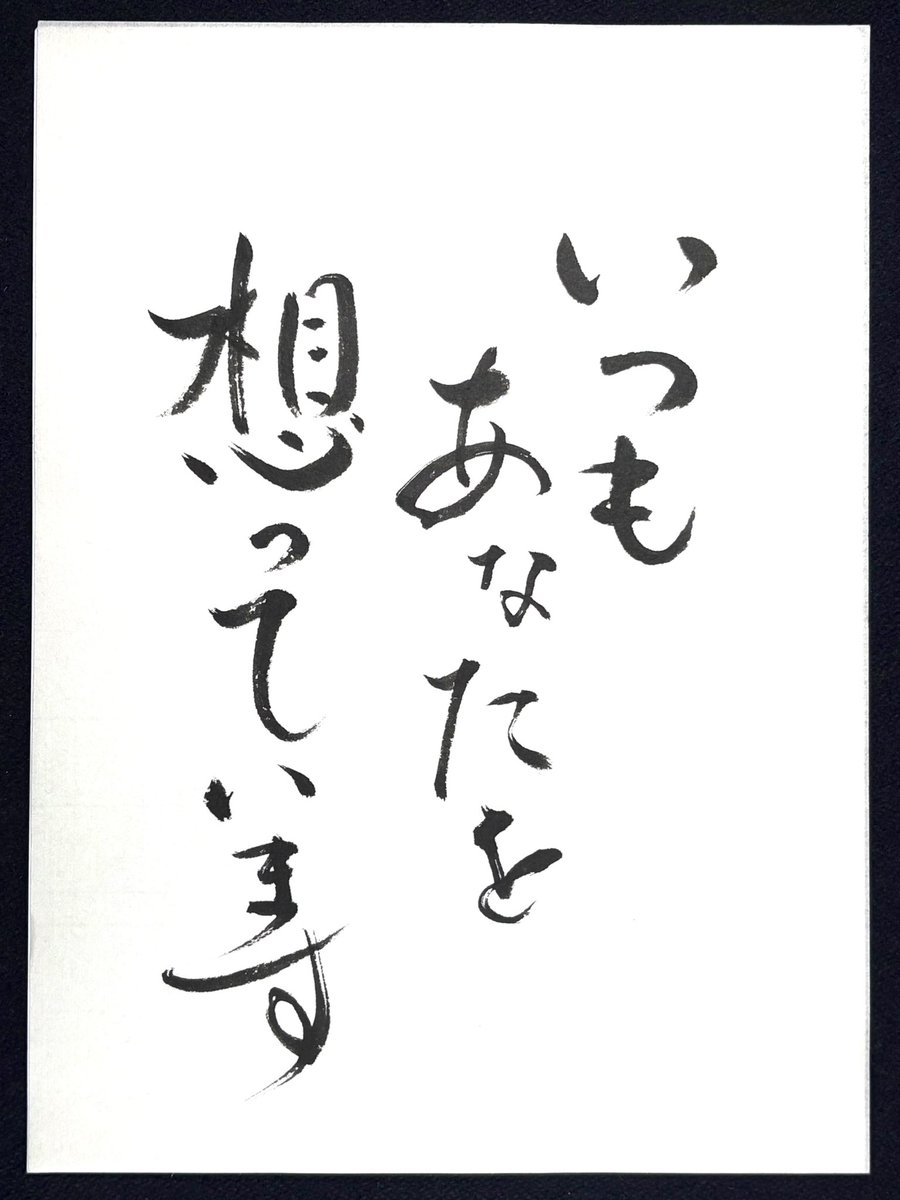 いつも
あなたを
想っています